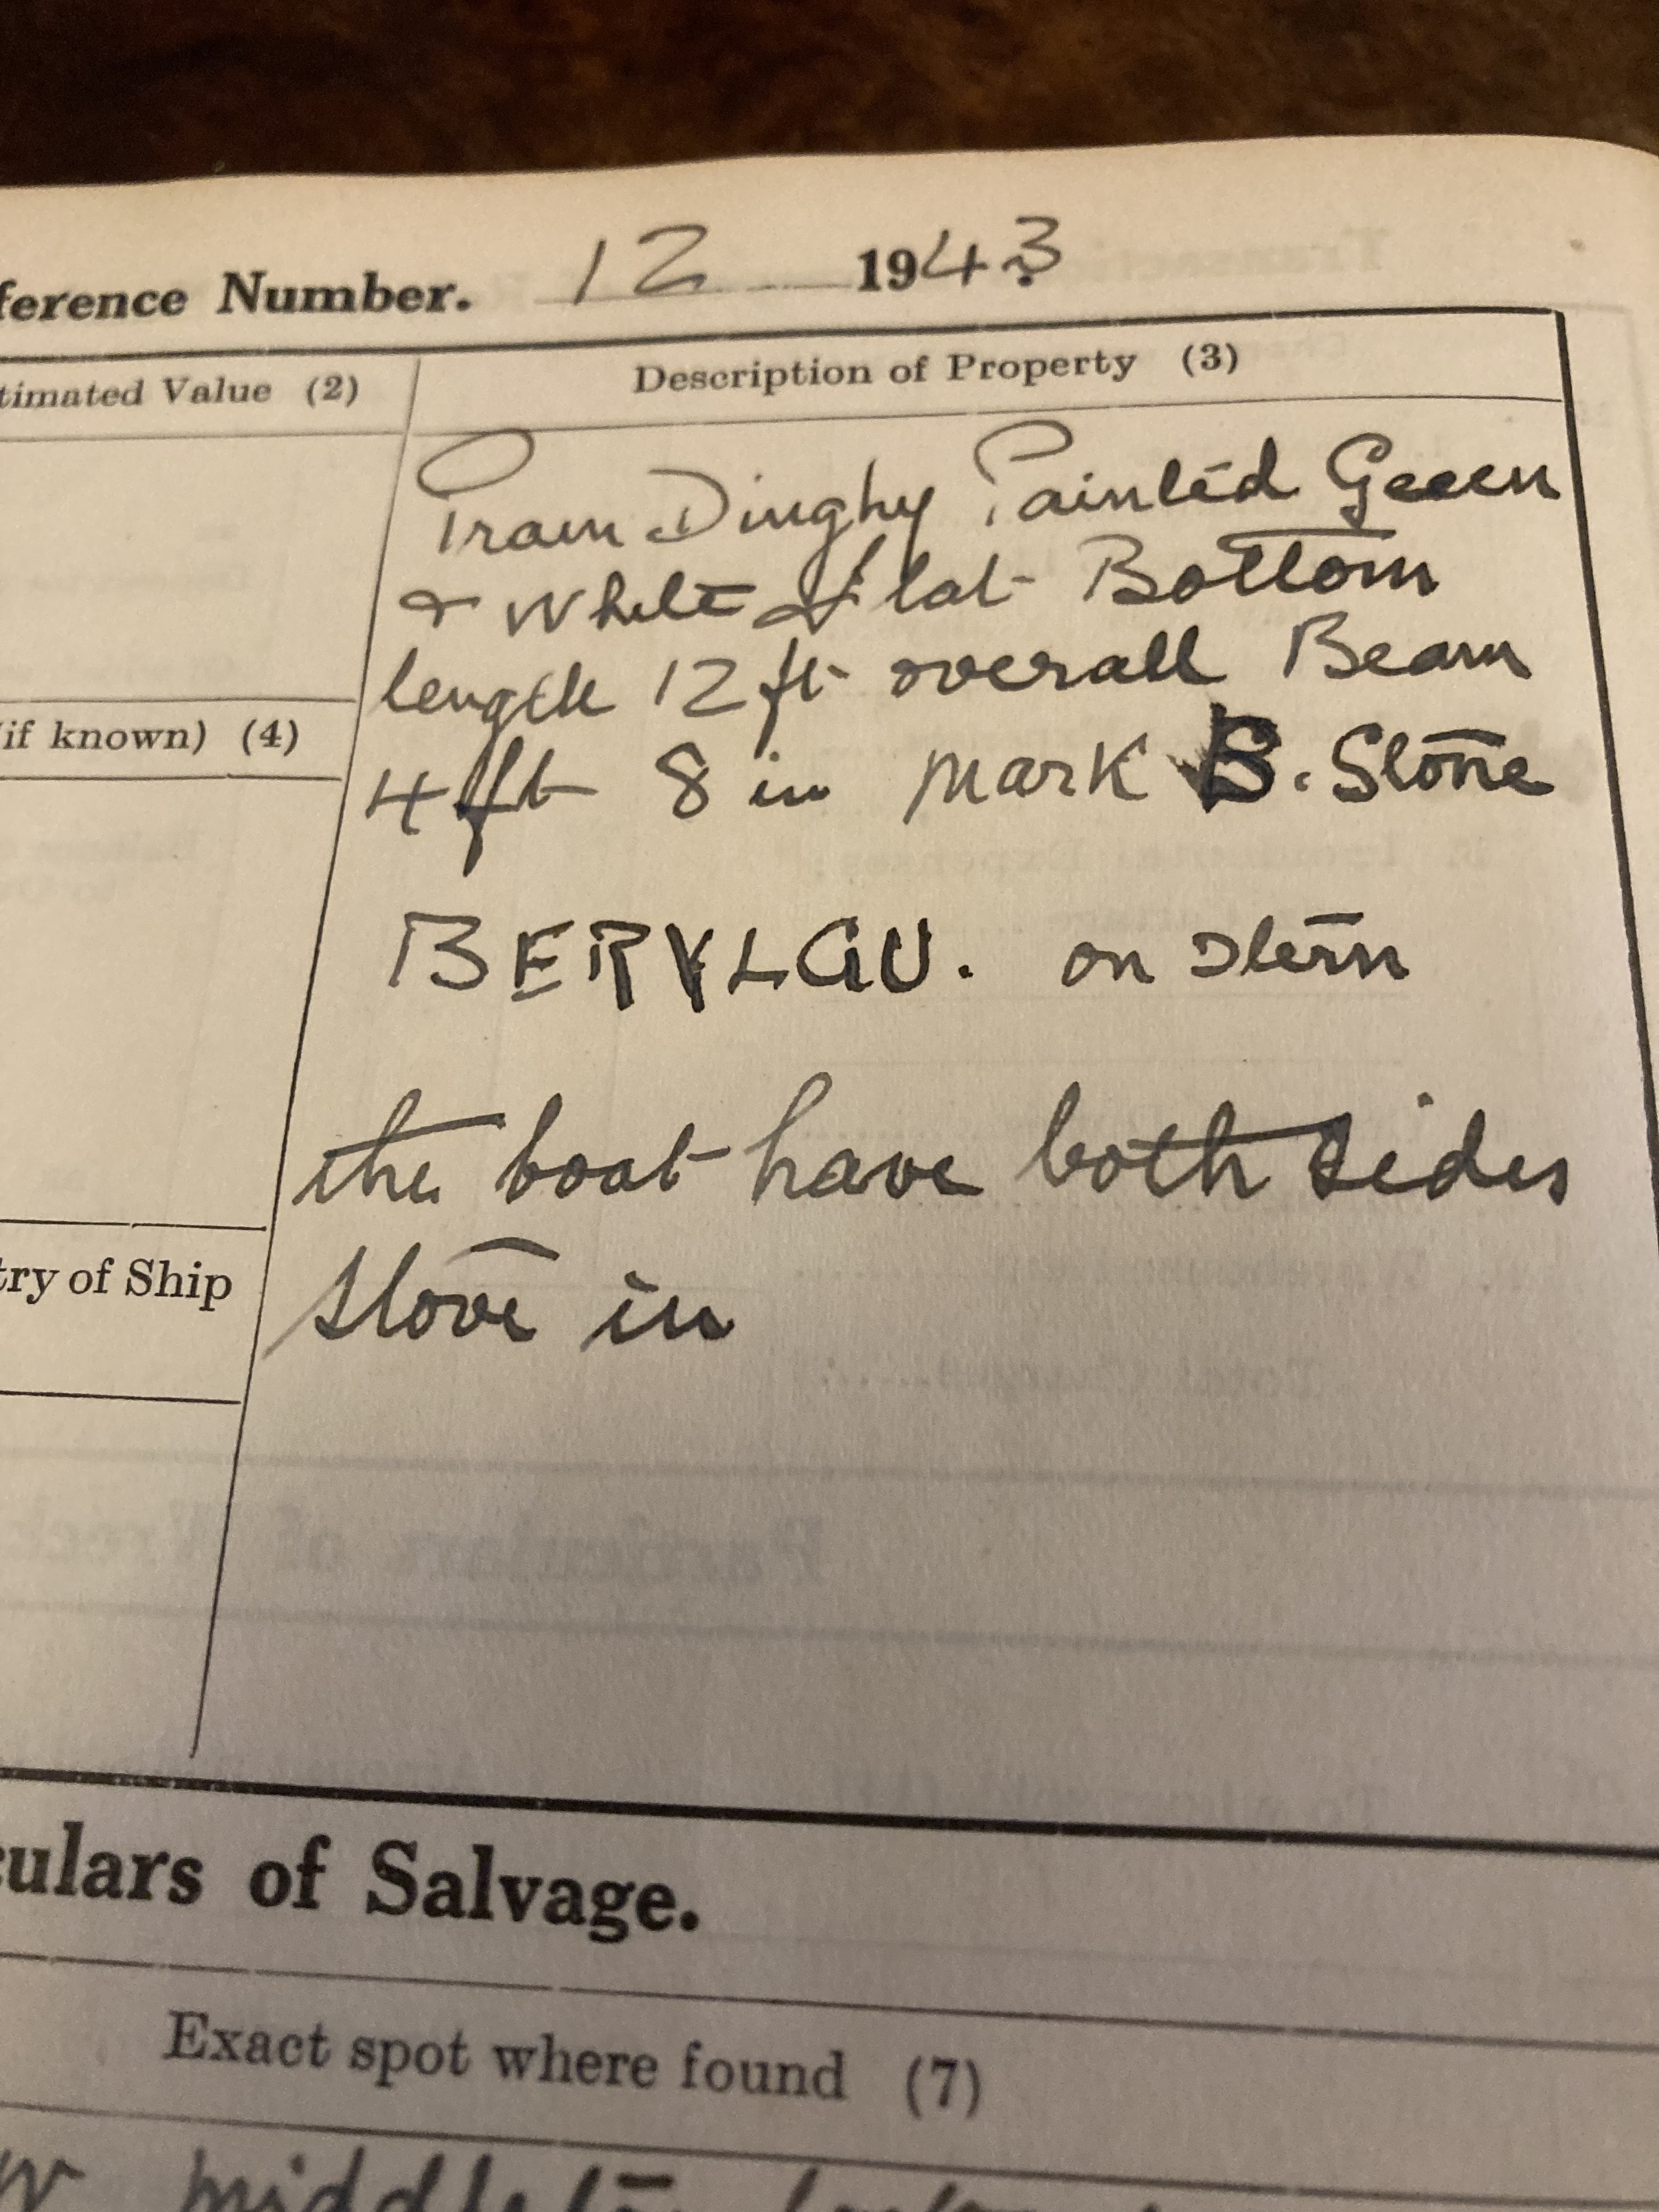 ference Number. 12 1943
timated Value (2)
Description of Property (3)
Pram Dinghy Painted Green
& White flat Bottom
length 12 ft overall Beam
4 ft 8 in mark B. Stone
(if known) (4)
BERYLGU. on stern
the boat have both sides
stove in
try of Ship
culars of Salvage.
Exact spot where found (7)
middleton